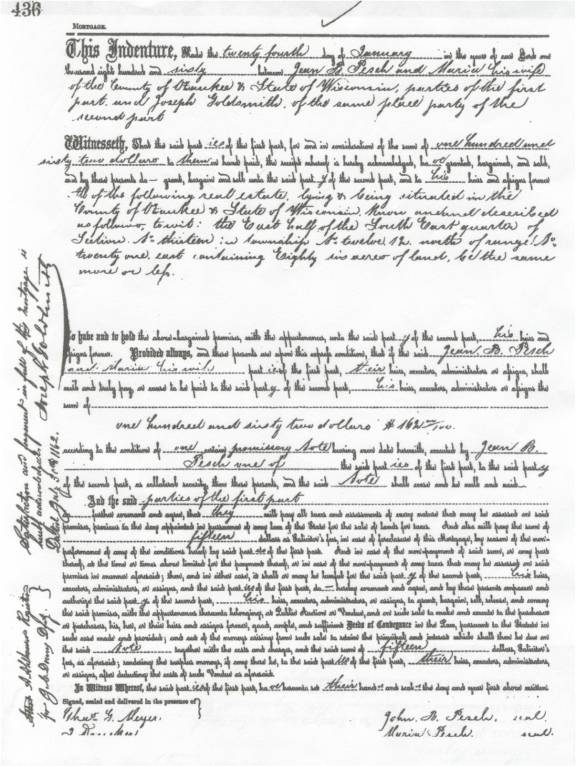 436
MORTGAGE.
This Indenture, Made the twenty fourth day of January in the year of our Lord one
thousand eight hundred and sixty between Jean B. Pesch and Maria his wife
of the County of Ozaukee & State of Wisconsin, parties of the first
part, and Joseph Goldsmith, of the same place party of the
second part
Witnesseth, That the said part ies of the first part, for and in consideration of the sum of one hundred and
sixty two dollars to them in hand paid, the receipt whereof is hereby acknowledged, ha ve granted, bargained, and sold,
and by these presents do grant, bargain and sell unto the said part y of the second part, and to his heirs and assigns forever
All of the following real estate, lying & being situated in the
County of Ozaukee & State of Wisconsin, known and and described
as follows, to wit: the East half of the South East quarter of
Section No thirteen in township No twelve 12 north of range No
twenty one east containing Eighty six acres of land, be the same
more or less.
To have and to hold the above-bargained premises, with the appurtenances, unto the said part y of the second part, his heirs and
assigns forever. Provided always, and these presents are upon this express condition, that if the said Jean B. Pesch
and Maria his wife part ies of the first part, their heirs, executors, administrators or assigns, shall
well and truly pay, or cause to be paid to the said part y of the second part, his heirs, executors, administrators or assigns the
sum of
one hundred and sixty two dollars $ 162 00/100
according to the condition of one certain promissory Note bearing even date herewith, executed by Jean B.
Pesch one of the said part ies of the first part, to the said part y
of the second part, as collateral security then these presents, and the said Note shall cease and be null and void.
And the said parties of the first part
further covenant and agree, that they will pay all taxes and assessments of every nature that may be assessed on said
premises, previous to the day appointed in pursuance of any law of the State for the sale of lands for taxes. And also will pay the sum of
fifteen dollars as Solicitor's fees, in case of foreclosure of this Mortgage, by reason of the non-
performance of any of the conditions hereof by said part ies of the first part. And in case of the non-payment of said sum, or any part
thereof, at the time or times above limited for the payment thereof, or in case of the non-payment of any taxes that may be assessed on said
premises in manner aforesaid; then, and in either case, it shall or may be lawful for the said part y of the second part, his heirs,
executors, administrators, or assigns, and the said part ies of the first part, do hereby covenant and agree, and by these presents empower and
authorize the said part y of the second part, his heirs, executors, administrators, or assigns, to grant, bargain, sell, release, and convey
the said premises, with the appurtenances thereunto belonging, at Public Auction or Vendue, and on such sale to make and execute to the purchaser
or purchasers, his, her, or their heirs and assigns forever, good, ample, and sufficient Deeds of Conveyance in the Law, pursuant to the Statute in
such case made and provided; and out of the moneys arising from such sale to retain the principal and interest which shall then be due on
the said Note together with the costs and charges, and the said sum of fifteen dollars, Solicitor's
fees, as aforesaid; rendering the surplus money, if any there be, to the said part ies of the first part, their heirs, executors, administrators,
or assigns, after deducting the costs of such Vendue as aforesaid.
In Witness Whereof, the said part ies of the first part, ha ve hereunto set their hand s and seal s the day and year first above written.
Signed, sealed and delivered in the presence of
Chas. G. Meyer
John B. Pesch seal
Maria Pesch seal
Satisfaction and payment in full of this mortgage is
Joseph Goldsmith